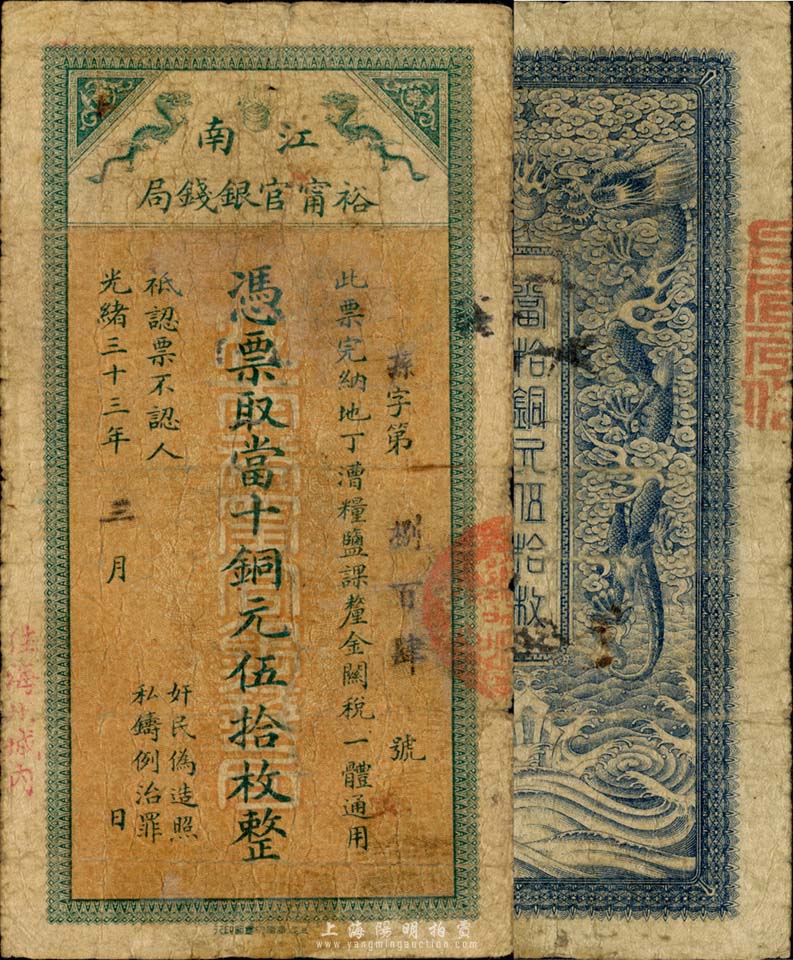 江南
裕甯官銀錢局
字第捌百肆號
此票完納地丁漕糧鹽課釐金關稅一體通用
憑票取當十銅元伍拾枚整
祗認票不認人
奸民偽造照
私鑄例治罪
光緒三十三年三月日
當拾銅元伍拾枚
上海陽明拍賣
www.yangmingauction.com